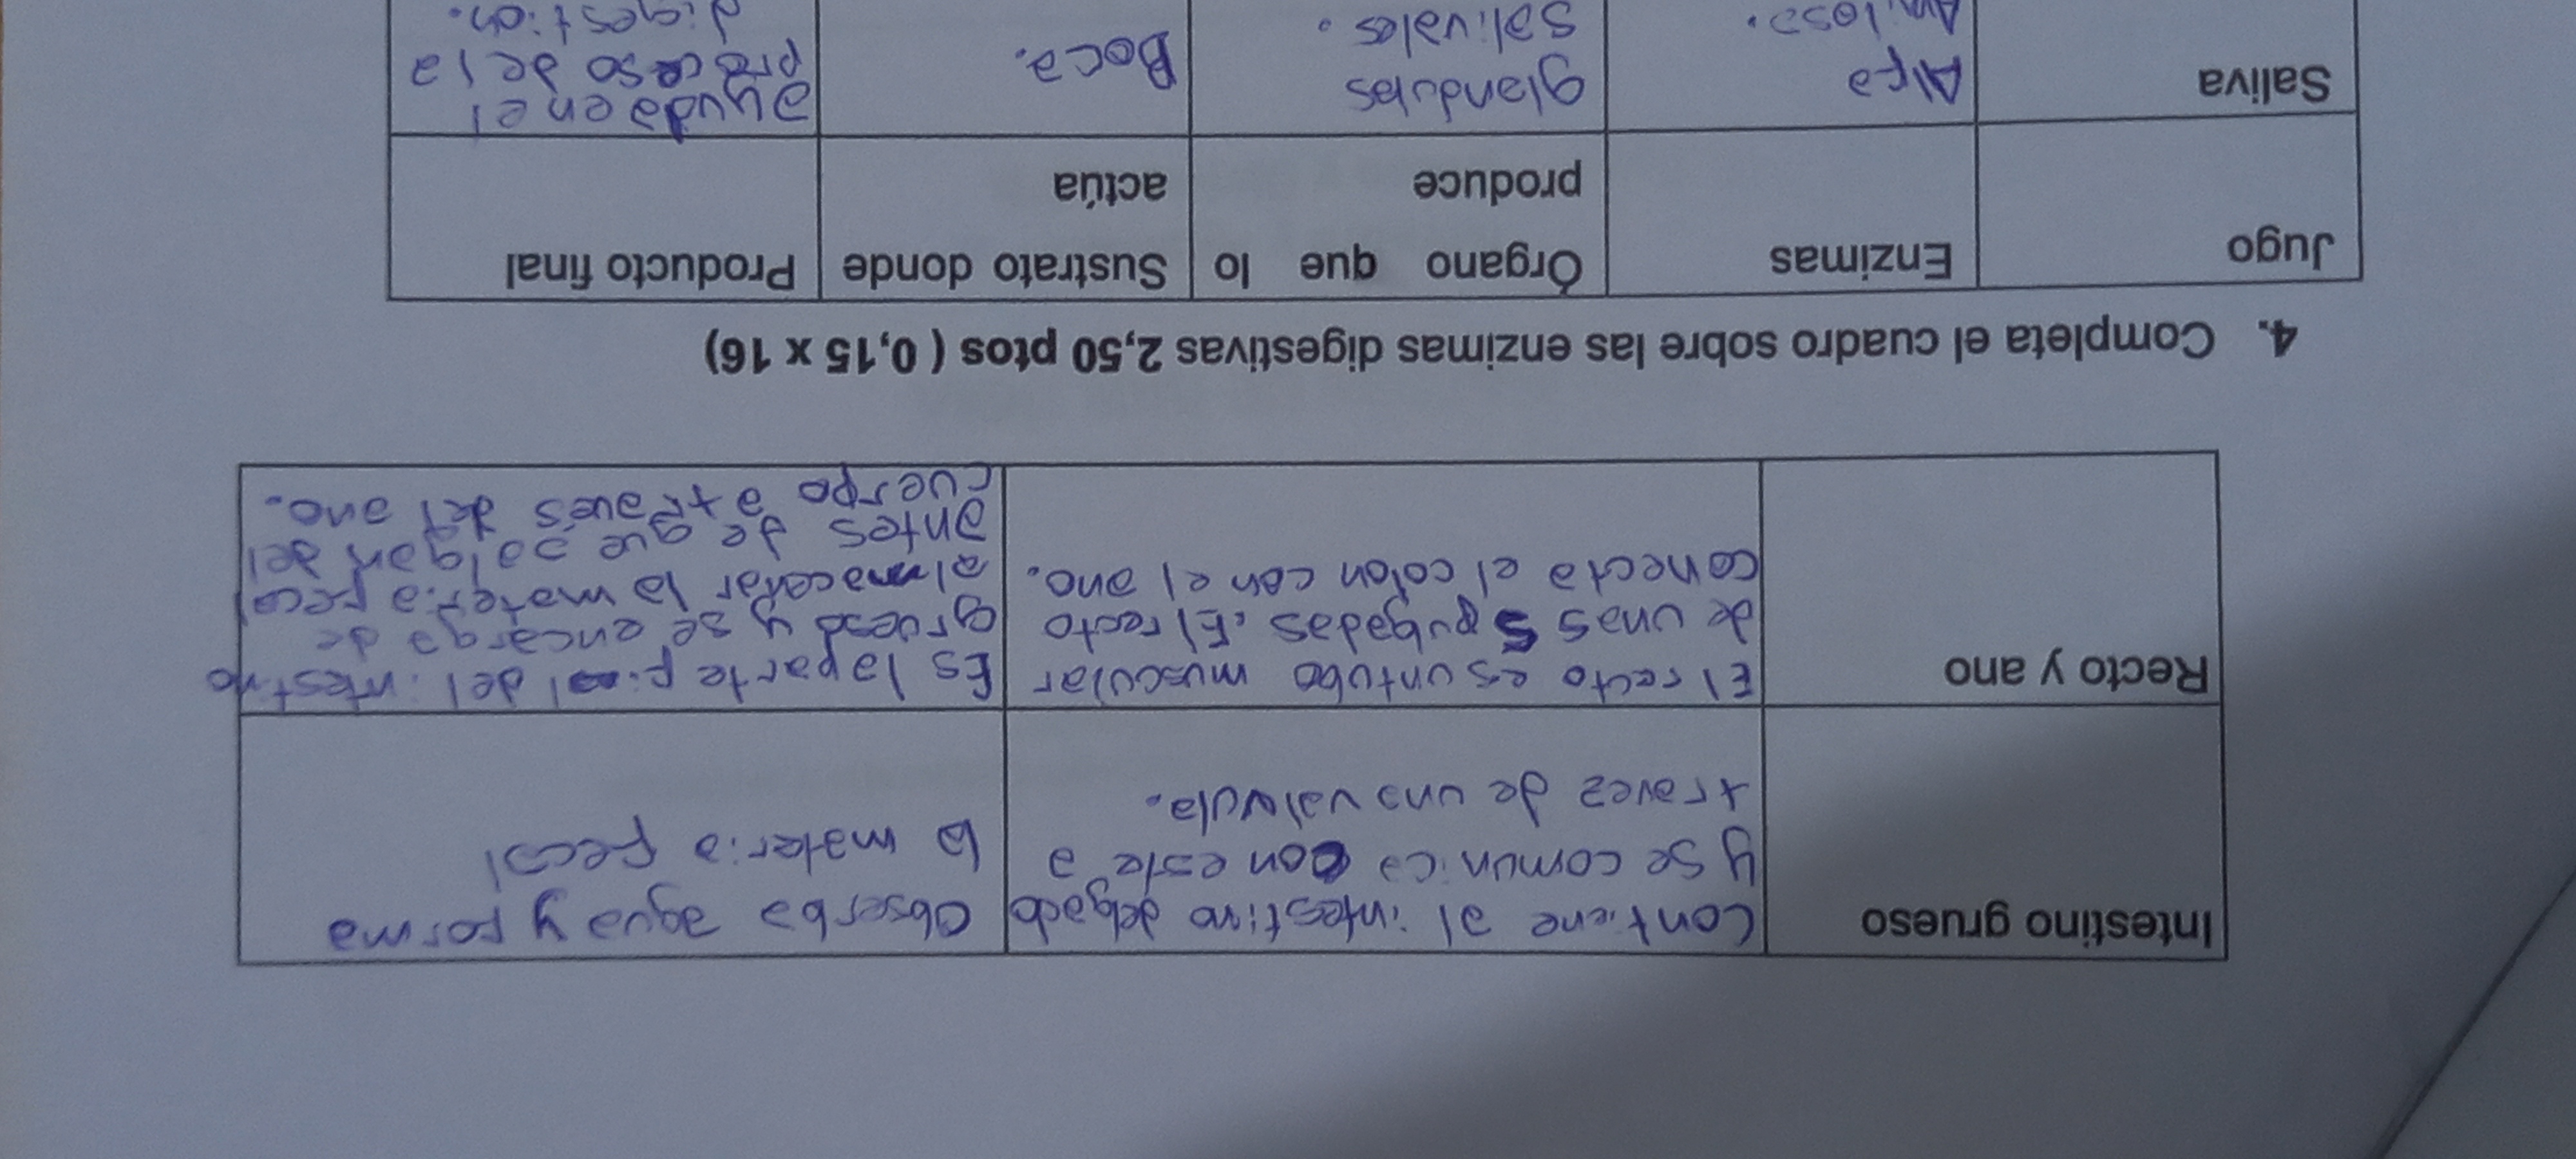 Intestino grueso
Contiene al intestino delgado
y se comunica con este a
travez de una valvula.
Obserba agua y forma
la materia fecal
Recto y ano
El recto es un tubo muscular
de unas 5 pulgadas. El recto
conecta el colon con el ano.
Es la parte final del intestino
grueso y se encarga de
almacenar la materia fecal
antes de que salgan del
cuerpo a traves del ano.
4. Completa el cuadro sobre las enzimas digestivas 2,50 ptos ( 0,15 x 16)
Jugo
Enzimas
Órgano que lo
produce
Sustrato donde
actúa
Producto final
Saliva
Alfa
Amilosa.
glandulas
salivales.
Boca.
ayuda en el
proceso de la
digestion.